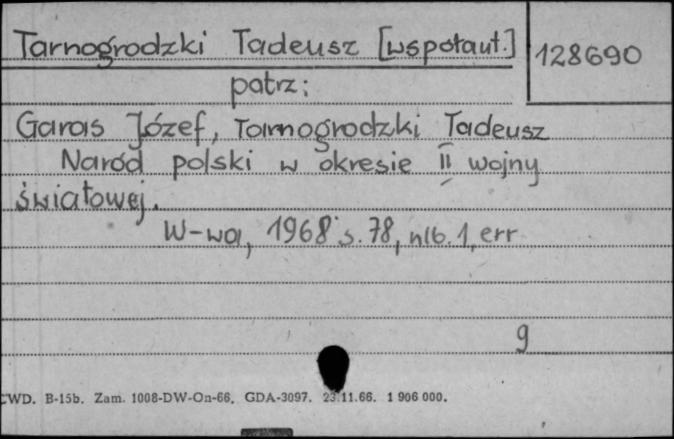 Tarnogrodzki Tadeusz [współaut.] 128690
patrz:
Garas Józef, Tarnogrodzki Tadeusz
Naród polski w okresie II wojny
światowej.
W-wa, 1968 s. 78, nlb. 1, err
9
CWD. B-15b. Zam. 1008-DW-On-66. GDA-3097. 23.11.66. 1 906 000.